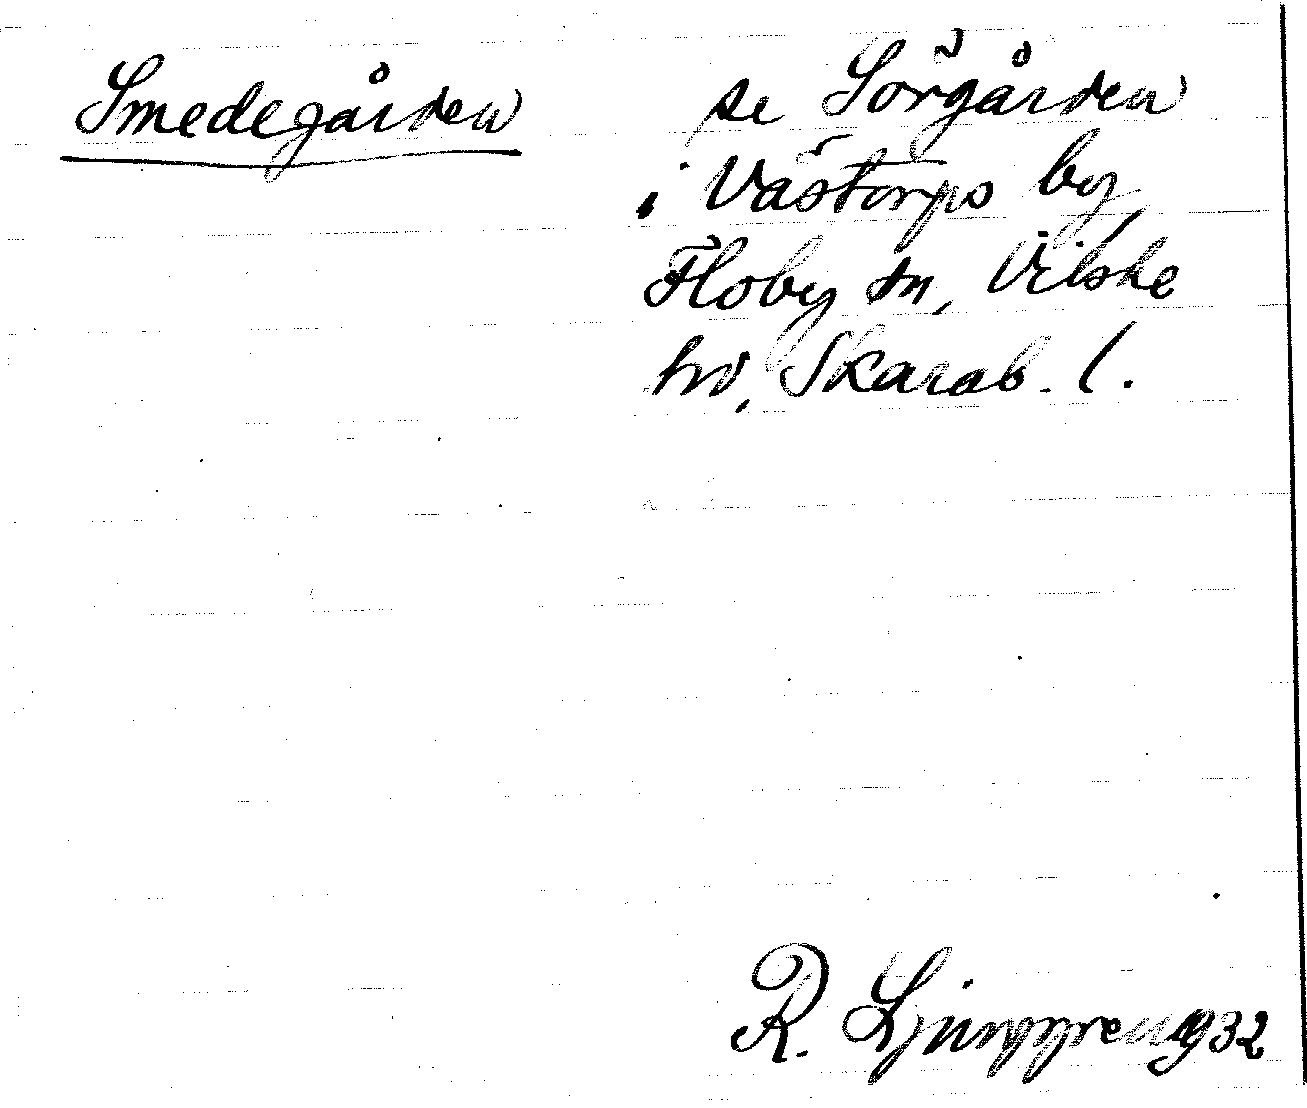 Smedegården se Sörgården
i Västorps by
Floby sn, Vilske
hd, Skarab. l.
R. Ljunggren 1932